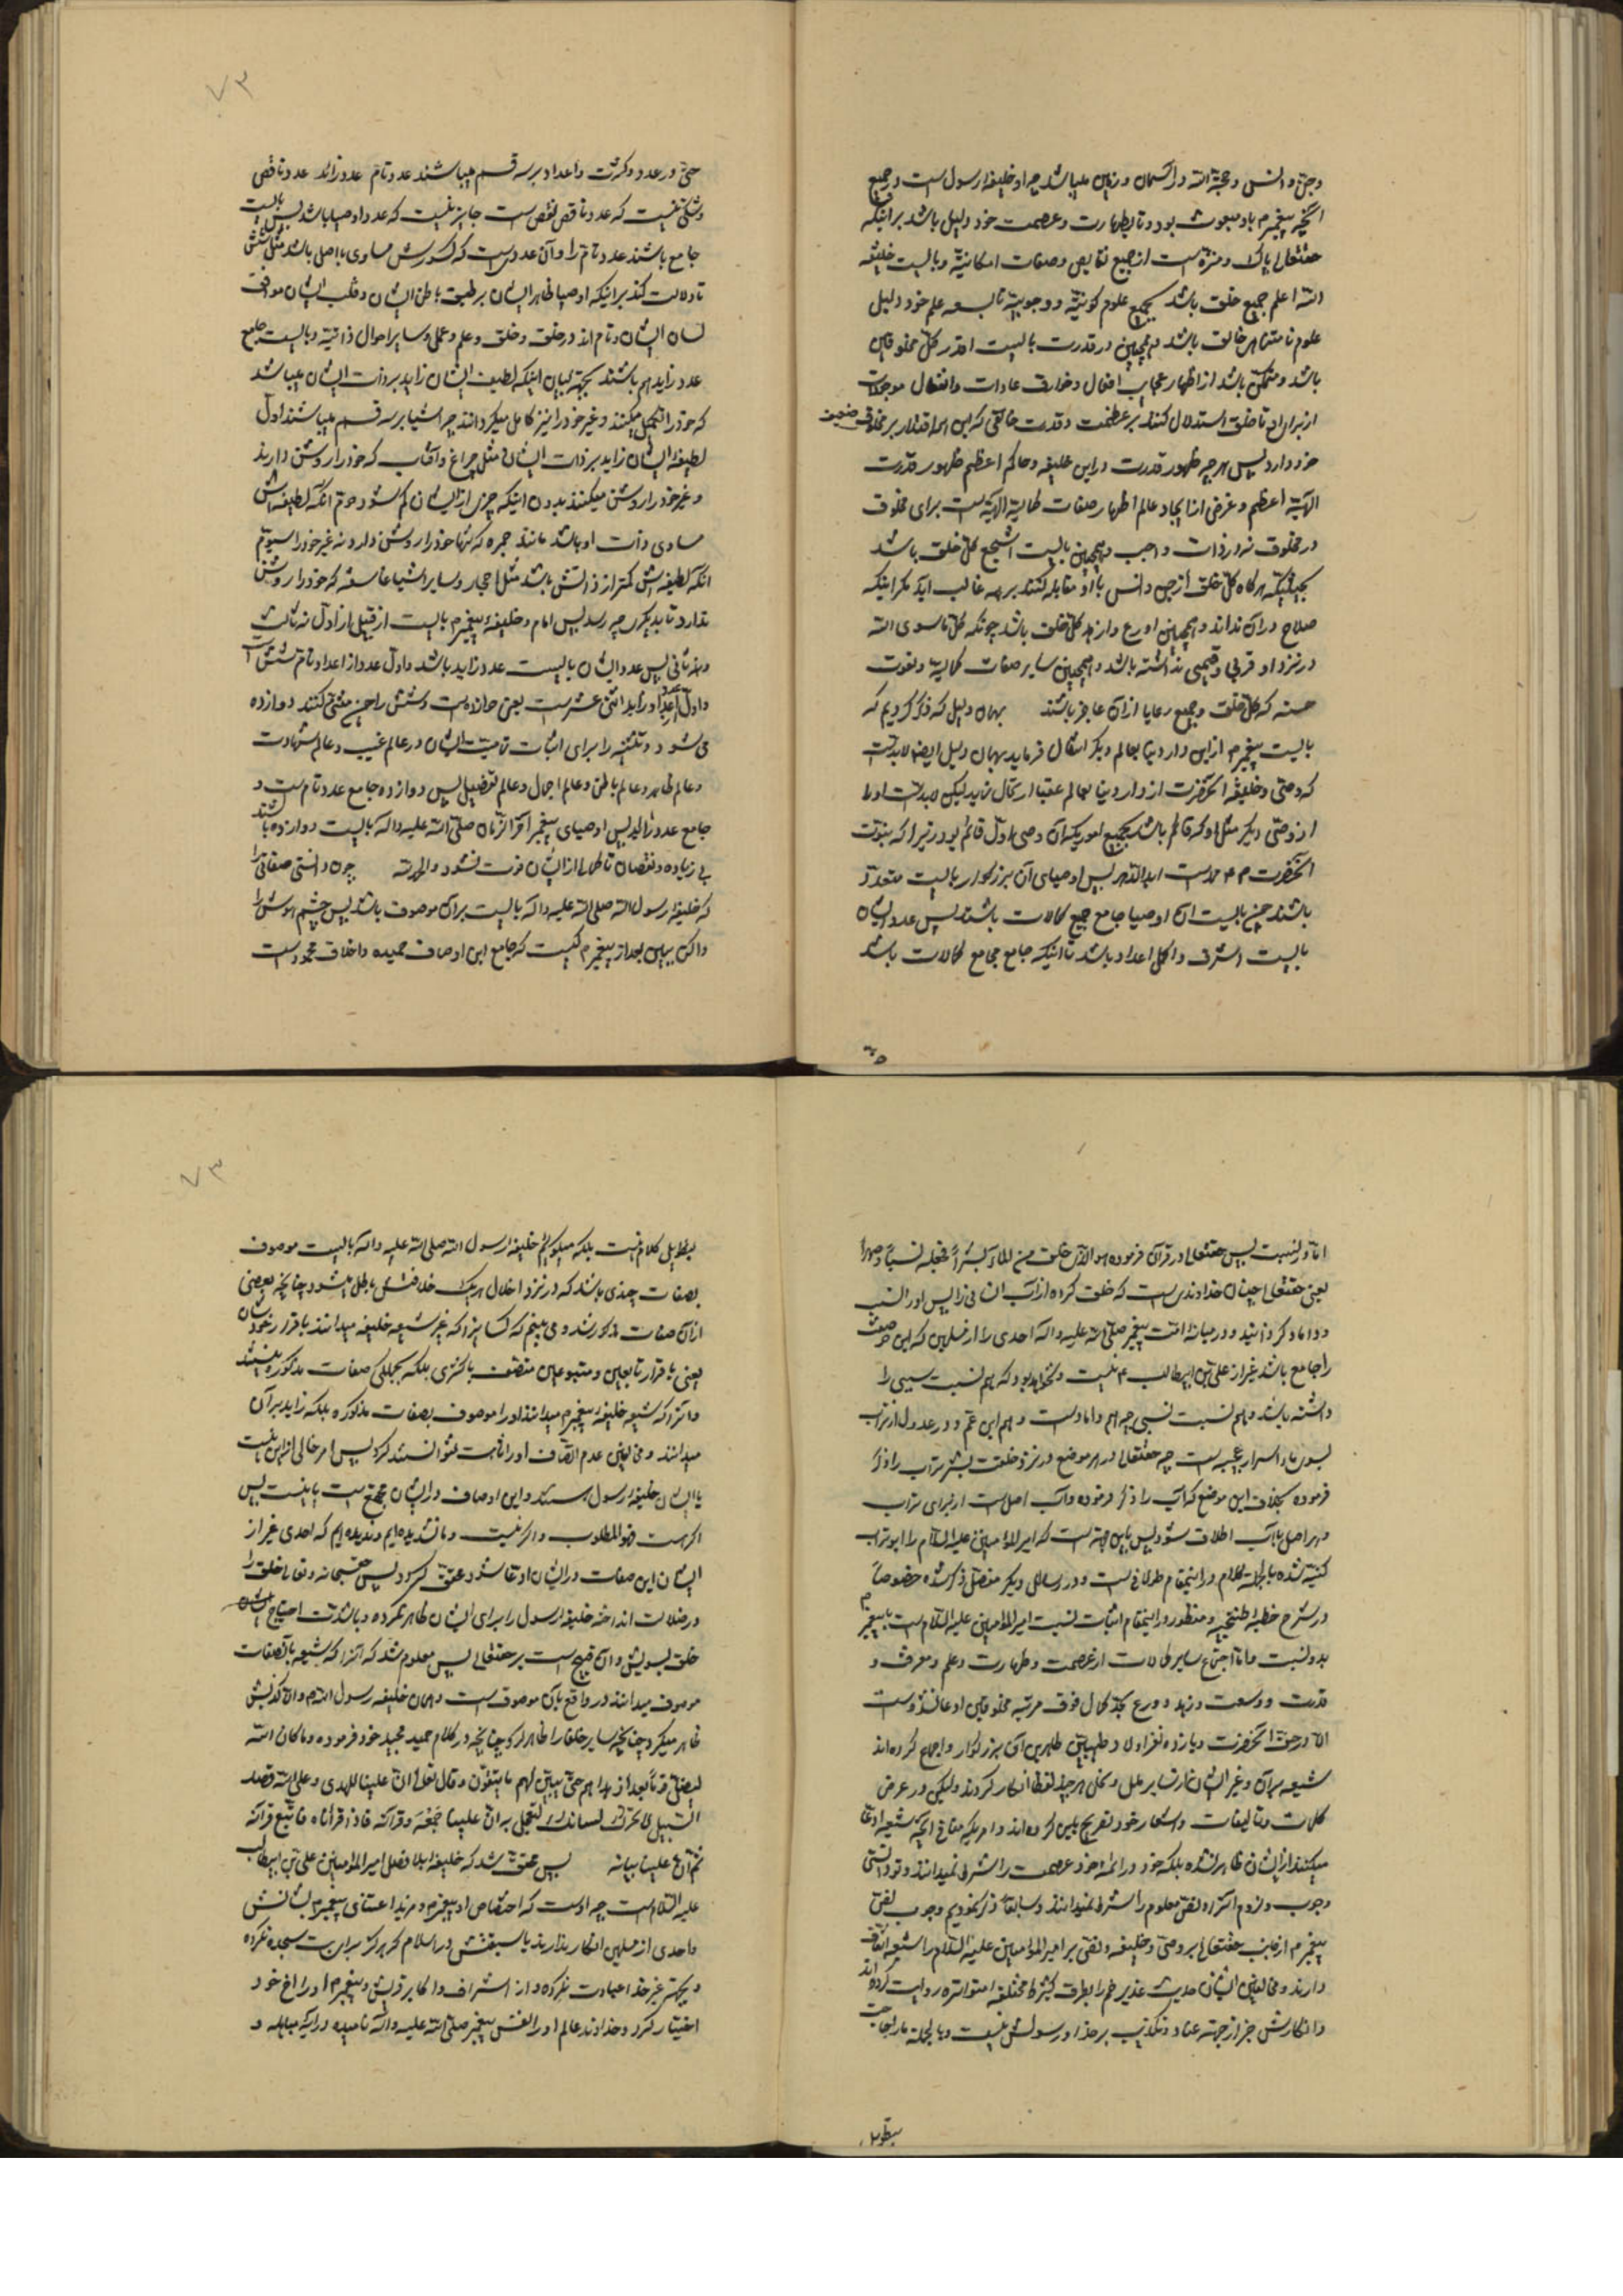 و جن و انس و حجة الله در آسمان و زمین میباشد چه او خلیفه رسول است و جمیع
آنچه پیغمبر م باو مبعوث بود و تا بطهارت و عصمت خود دلیل باشد بر اینکه
حقتعالی پاک و منزه است از جمیع نقایص و صفات امکانیة و بایست خلیفه
الله اعلم جمیع خلق باشد بجمیع علوم کونیة و وجوبیة تا بسعه علم خود دلیل
علوم نامتناهی خالق باشد و همچنین در قدرت بایست اقدر کل مخلوقین
باشد و متمکن باشد از اظهار عجایب افعال و خارق عادات و انفعال موجودات
از برای او تا خلق استدلال کنند بر عظمت و قدرت خالقی که این همه اقتدار بر مخلوق ضعیف
خود دارد پس هر چه ظهور قدرت در این خلیفه و حاکم اعظم ظهور قدرت
الهیة اعظم و غرض از ایجاد عالم اظهار صفات کمالیة الهیه است برای مخلوق
در مخلوق نه در ذات واجب و همچنین بایست اشجع کل خلق باشد
بحیثیتیکه هر گاه کل خلق از جن و انس با او مقابله کنند بر همه غالب آید مگر اینکه
صلاح در آن نداند و همچنین اورع و ازهد کل خلق باشد چونکه کل ماسوی الله
در نزد او قربی و قیمتی نداشته باشد و همچنین سایر صفات کمالیه و نعوت
حسنه که کل خلق و جمیع رعایا از آن عاجز باشند بهمان دلیل که ذکر کردیم که
بایست پیغمبر م از این دار دنیا بعالم دیگر انتقال فرماید بهمان دلیل ایضا لابدست
که وصی و خلیفه آنحضرت از دار دنیا بعالم عقبا ارتحال نماید لیکن لابدست او را
از وصی دیگر مثل او که قائم باشد بجمیع اموریکه آن وصی اول قائم بود زیرا که نبوت
آنحضرت م ممتد است ابد الدهر پس اوصیای آن بزرگوار بایست متعدد
باشند و چون بایست آن اوصیا جامع جمیع کمالات باشند پس عدد ایشان
بایست اشرف و اکمل اعداد باشد تا اینکه جامع مجامع کمالات باشد
۷۲
حتی در عدد و کثرت و اعداد بر سه قسم میباشند عدد تام عدد زائد عدد ناقص
و شکی نیست که عدد ناقص نقص است جایز نیست که عدد اوصیا باشد پس بایست
جامع باشند عدد تام را و آن عددیست که کسورش مساوی با اصل باشد مثل شش
تا دلالت کند بر اینکه اوصیا ظاهر ایشان بر طبق باطن ایشان و قلب ایشان موافق
لسان ایشان و تام اند در خلق و خلق و علم و عمل و سایر احوال ذاتیة و بایست جامع
عدد زاید هم باشند بجهة بیان اینکه لطیفه ایشان زاید بر ذات ایشان میباشد
که خود را تکمیل میکنند و غیر خود را نیز کامل میگردانند چه اشیا بر سه قسم میباشند اول
لطیفه ایشان زاید بر ذات ایشان مثل چراغ و آفتاب که خود را روشن دارند
و غیر خود را روشن میکنند بدون اینکه چیزی از ایشان کم شود دوم آنکه لطیفه اش
مساوی ذات او باشد مانند جمره که تنها خود را روشن دارد و نه غیر خود را سیوم
آنکه لطیفه اش کمتر از ذاتش باشد مثل احجار و سایر اشیاء غاسقه که خود را روشن
ندارد تا بدیگری چه رسد پس امام و خلیفه پیغمبر م بایست از قبیل از اول نه ثالث
و نه ثانی پس عدد ایشان بایست عدد زاید باشد و اول عدد از اعداد تام شش است
و اول اعداد زاید اثنی عشر است یعنی دوازده است و شش را چون مثنی کنند دوازده
می شود و تثنیه را برای اثبات تمامیت ایشان در عالم غیب و عالم شهادت
و عالم ظاهر و عالم باطن و عالم اجمال و عالم تفصیل پس دوازده جامع عدد تام است و
جامع عدد زائد پس اوصیای پیغمبر آخر الزمان صلی الله علیه و آله بایست دوازده باشند
بی زیاده و نقصان تا کمالی از ایشان فوت نشود و الحمد لله چون دانستی صفاتی را
که خلیفه رسول الله صلی الله علیه و آله بایست بر آن موصوف باشد پس چشم هوش را
واکن ببین بعد از پیغمبر م کیست که جامع این اوصاف حمیده و اخلاق محموده است
اما در نسبت پس حقتعالی در قرآن فرموده هو الذی خلق من الماء بشرا فجعله نسبا و صهرا
یعنی حقتعالی چنان خداوندی است که خلق کرده از آب انسانی را پس او را نسب
و داماد گردانید و در میانه امت پیغمبر صلی الله علیه و آله احدی را از مسلمین که این دو صفت
را جامع باشد غیر از علی بن ابیطالب ۴ نیست و نخواهد بود که هم نسبت سببی را
داشته باشد و هم نسبت نسبی چه هم داماد است و هم ابن عم و در عدول از تراب
بسوی ماء اسرار عجیبه است چه حقتعالی در هر موضع در نزد خلقت بشر تراب را ذکر
فرموده بخلاف این موضع که آب را ذکر فرموده و آب اصل است از برای تراب
و بر اصل باب اطلاق شود پس باین جهة است که امیر المؤمنین علیه السلام را ابو تراب
کنیه شده بالجمله کلام در اینمقام طولانی است و در رسائل دیگر مفصل ذکر شده خصوصا
در شرح خطبه طتنجیه و منظور در اینمقام اثبات نسبت امیر المؤمنین علیه السلام است با پیغمبر م
بدو نسبت و اما اجتماع سایر کمالات از عصمت و طهارت و علم و معرفت و
قدرت و وسعت و زهد و ورع بحد کمال فوق مرتبه مخلوقین ادعا نشده است
الا در حق آنحضرت و یازده نفر اولاد طیبین طاهرین آن بزرگوار و اجماع کرده اند
شیعه بر آن و غیر ایشان از سایر ملل و نحل هر چند لفظا انکار کردند ولیکن در عرض
کلمات و تالیفات و اشعار خود تصریح باین کرده اند و امریکه منافی آنچه شیعه ادعا
میکنند از ایشان ظاهر نشده بلکه خود در ائمه خود عصمت را شرط نمیدانند و تو دانستی
وجوب و لزوم آنرا و نص معلوم را شرط نمیدانند و سابقا ذکر نمودیم وجوب نص
پیغمبر م از جانب حقتعالی بر وصی و خلیفه و نص بر امیر المؤمنین علیه السلام را شیعه اتفاق
دارند و مخالفین ایشان حدیث غدیر خم را بطرق کثیره مختلفه متواتره روایت کرده اند
و انکارش جز از جهة عناد و تکذیب بر خدا و رسولش نیست و بالجملة ما را حاجت
بتطویل
۷۳
بتطویل کلام نیست بلکه میگوئیم خلیفه رسول الله صلی الله علیه و آله بایست موصوف
بصفات چندی باشد که در نزد اخلال هر یک خلافتش باطل میشود چنانچه بعضی
از آن صفات مذکور شد و می بینیم که کسانیرا که غیر شیعه خلیفه میدانند باقرار خودشان
یعنی باقرار تابعین و متبوعین متصف باکثری بلکه بجملگی صفات مذکوره نیستند
و آنرا که شیعه خلیفه پیغمبر م میدانند او را موصوف بصفات مذکوره بلکه زاید بر آن
میدانند و مخالفین عدم اتصاف او را ثابت نتوانستند کرد پس امر خالی از این نیست
یا ایشان خلیفه رسول هستند و این اوصاف در ایشان مجتمع است یا نیست پس
اگر هست فهو المطلوب و اگر نیست و ما نشنیده ایم و ندیده ایم که احدی غیر از
ایشان این صفات در ایشان ادعا شود و متحقق گردد پس حق سبحانه و تعالی خلق را
در ضلالت انداخته خلیفه رسول را برای ایشان ظاهر نکرده و با شدت احتیاج
خلق بسویش و آن قبیح است بر حقتعالی پس معلوم شد که آنرا که شیعه باین صفات
موصوف میدانند در واقع بآن موصوف است و همان خلیفه رسول الله م و الا کذبش
ظاهر میکرد چنانچه سایر خلفا را ظاهر کرد چنانچه در کلام حمید مجید خود فرموده و ما کان الله
لیضل قوما بعد اذ هداهم حتی یبین لهم ما یتقون و قال تعالی ان علینا للهدی و علی الله قصد
السبیل لا تحرک به لسانک لتعجل به ان علینا جمعه و قرآنه فاذا قرأناه فاتبع قرآنه
ثم ان علینا بیانه پس متحقق شد که خلیفه بلا فصل امیر المؤمنین علی بن ابیطالب
علیه السلام است چه اوست که اختصاص او به پیغمبر م و مزید اعتنای پیغمبر م بشانش
و احدی از مسلمین انکار ندارند با سبقتش در اسلام که هرگز برای بت سجده نکرده
و بجهة غیر خدا عبادت نکرده و از اشراف و اکابر قریش و پیغمبر م او را اخ خود
اختیار کرد و خداوند عالم او را نفس پیغمبر صلی الله علیه و آله نامیده در آیه مباهله و